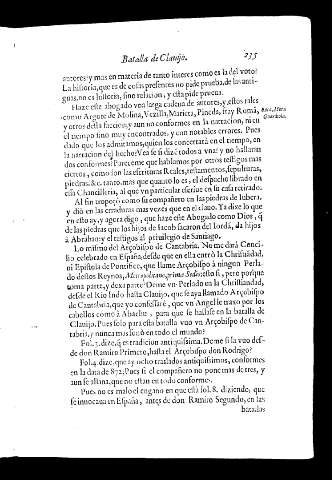 Batalla de Clauijo. 235
autores: y mas en materia de tanto interes como es la del voto?
La historia, que es de cosas presentes no pide prueua, de las anti-
guas, no es historia, sino relacion, y esta pide prueua.
Haze este abogado vna larga cadena de autores, y estos tales
como Argote de Molina, Vezilla, Marieta, Pineda, fray Român,
y otros desta faccion; y aun no conformes en la narracion, ni en
el tiempo sino muy encontrados, y con notables errores. Pues
dado que los admitamos, quien los concertarà en el tiempo, en
la narracion del hecho? Vea se si dizê todos a vna? y no hallarà
dos conformes? Pareceme que hablamos por otros testigos mas
ciertos, como son las escrituras Reales, testamentos, sepulturas,
piedras. &c. tanto mas que quanto lo es, el despacho librado en
esta Chancilleria, al que vn particular escriue en su casa retirado.
Al fin tropeçò como su compañero en las piedras de
y diò en las erradas mas vezes que en el clauo. Ya dixe lo que
en esto ay, y agora digo, que haze este Abogado como Dios, q̃
de las piedras que los hijos de Iacob sacaron del Iordâ, da hijos
à Abraham: y el testigos al priuilegio de Santiago.
Lo mismo del Arçobispo de Cantabria. No me darà Conci-
lio celebrado en España, desde que en ella entrò la Christiâdad,
ni Epistola de Pontifice, que llame Arçobispo à ningun Perla-
do destos Reynos, Metropolitano, primæ Sedis, esso si, pero porque
toma parte, y dexa parte? Deme vn Perlado en la Christiandad,
desde el Rio Indo hasta Clauijo, que se aya llamado Arçobispo
de Cantabria, que yo confessarè, que vn Angel le traxo por los
cabellos como à Abacuc, para que se hallasse en la batalla de
Clauijo. Pues solo para esta batalla vuo vn Arçobispo de Can-
tabria, y nunca mas sonò en todo el mundo?
Fol. 3. dize, q̃ es tradicion antiquissima. Deme si la vuo des-
de don Ramiro Primero, hasta el Arçobispo don Rodrigo?
Fol. 4. dize, que ay ocho traslados antiquissimos, conformes
en la data de 872. Pues si el compañero no pone mas de tres, y
aun se allana, que no estan en todo conformes.
Pues no es malo el engaño en que està fol. 8. diziendo, que
se inuocaua en España, antes de don Ramiro Segundo, en las
batallas